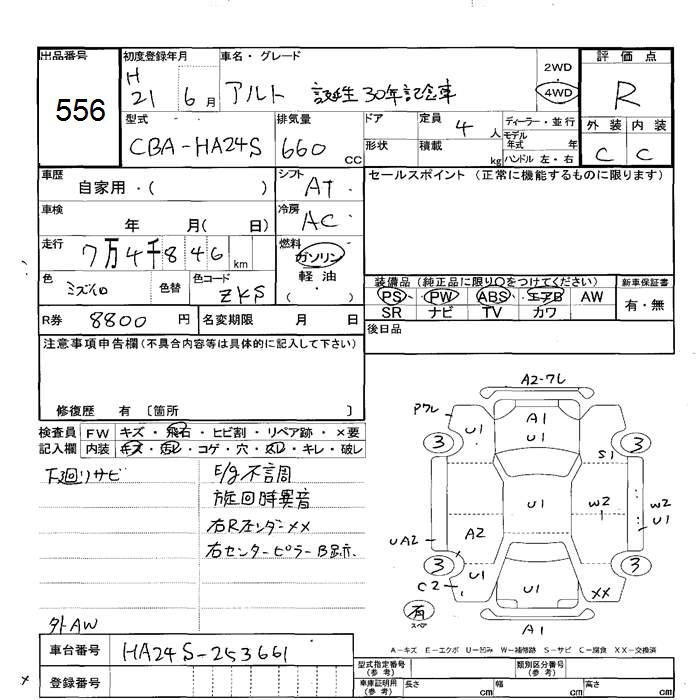 出品番号 初度登録年月 車名・グレード 評価点
556 H 21 6月 アルト 誕生30年記念車 2WD 4WD R
型式 排気量 ドア 定員 4 人 ディーラー・並行 外装 内装
CBA-HA24S 660 CC 形状 積載 kg モデル年式 年 C C
ハンドル 左・右
車歴 自家用・( ) シフト AT セールスポイント (正常に機能するものに限ります)
車検 年 月( 日) 冷房 AC
走行 7万4千846 km 燃料 ガソリン・軽油 ( )
色 ミズイロ 色替 色コード ZKS 装備品 (純正品に限り○をつけてください) 新車保証書
PS PW ABS エアB AW 有・無
R券 8800 円 名変期限 月 日 SR ナビ TV カワ
注意事項申告欄(不具合内容等は具体的に記入して下さい) 後日品
修復歴 有 〔箇所 〕
検査員 FW キズ・飛石・ヒビ割・リペア跡・×要
記入欄 内装 キズ・汚レ・コゲ・穴・スレ・キレ・破レ
下廻りサビ E/g不調
旋回時異音
右Rフェンダー××
右センターピラーB跡.
外AW
A2-ワレ
Pワレ A1
U1 U1
3 3
S1
U1 W2 W2
U1
A2
UA2
3 3
U1
C2 U1 XX
有
スペア A1
A-キズ E-エクボ U-凹み W-補修跡 S-サビ C-腐食 XX-交換済
車台番号 HA24S-253661 型式指定番号(参考) 類別区分番号(参考)
登録番号 車庫証明用(参考) 長さ cm 幅 cm 高さ cm